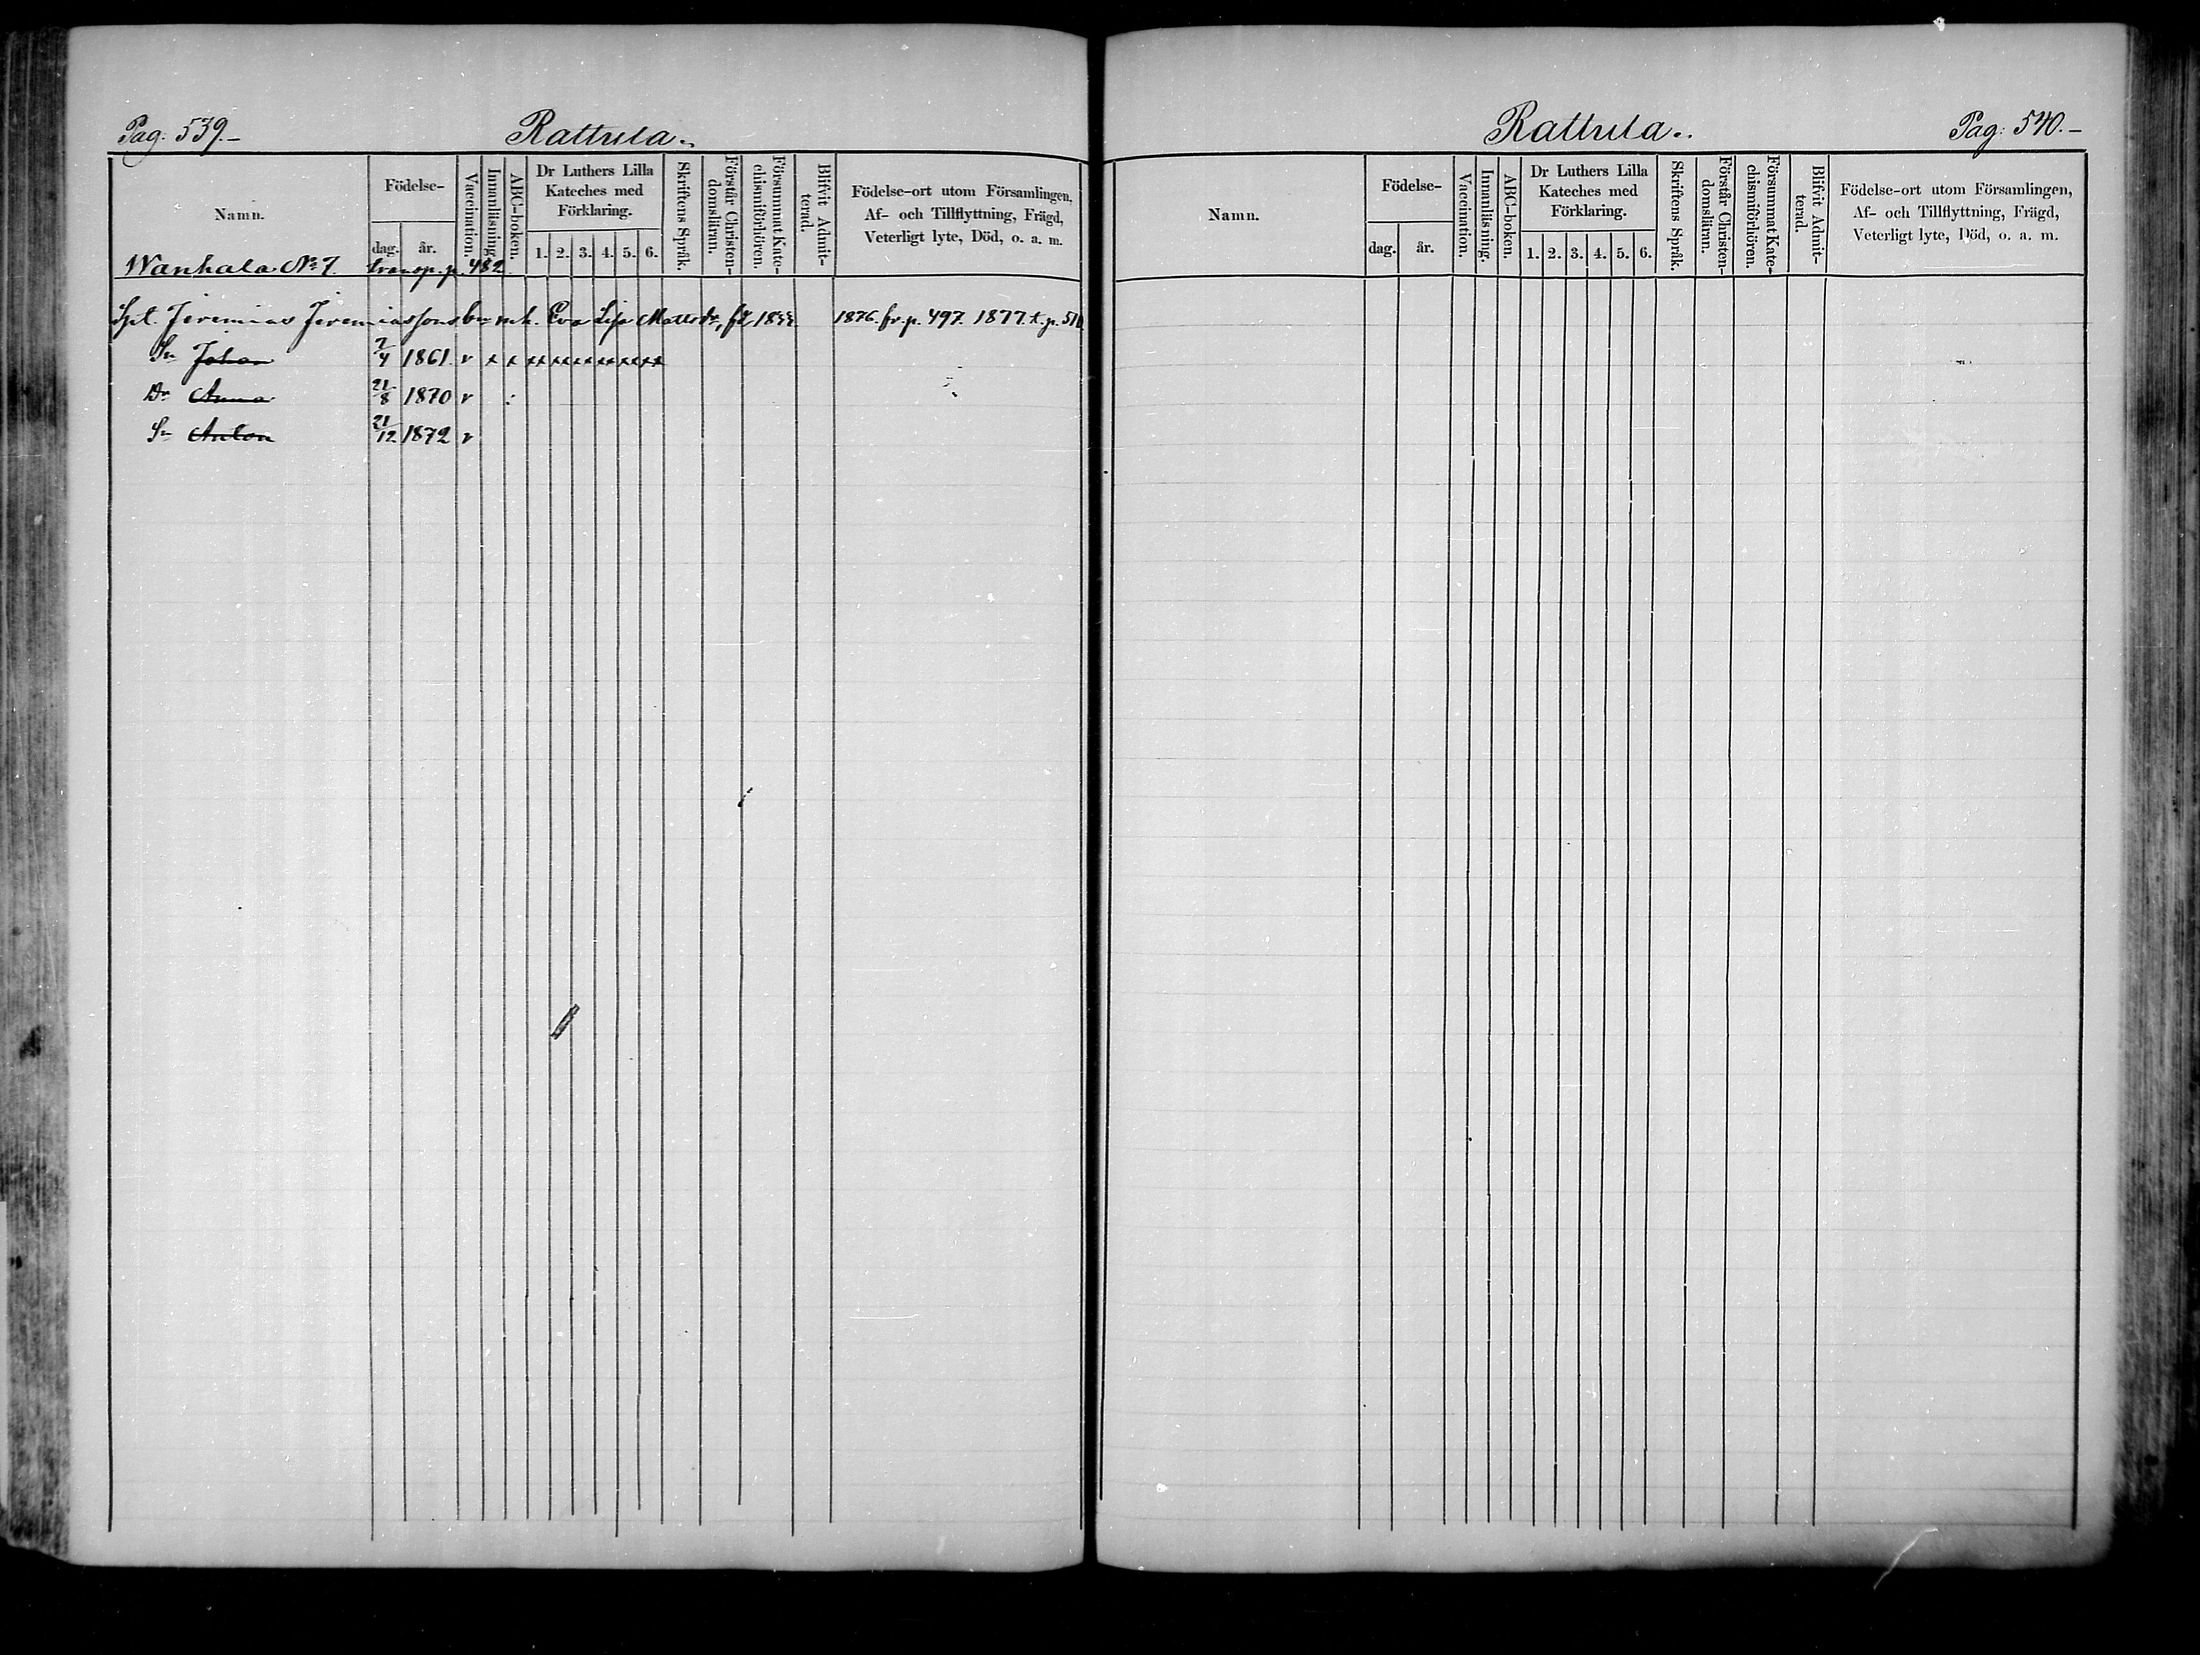 Pag: 539.–
Rattula.
Namn.
Födelse–
dag.
år.
Vaccination.
Innanläsning.
ABC–boken.
Dr Luthers Lilla
Kateches med
Förklaring.
1. 2. 3. 4. 5. 6.
Skriftens Språk.
Förstår Christen–
domsläran.
Försummat Kate–
chismiförhören.
Blifvit Admit–
terad.
Födelse–ort utom Församlingen,
Af– och Tillflyttning, Frägd,
Veterligt lyte, Död, o. a. m.
Wanhala No 7. transp. p. 482
Jeremias Jeremiassons Eva Lisa Mattsdr, 1876. fr. p. 497. 1877. t. p.
Sn Johan 7/4 1861. v x x xx xx xx xx xx xx
Dr Anna 21/8 1870 v :
Sn Anton 21/12 1872 v
Rattula.
Pag: 540.–
Namn.
Födelse–
dag.
år.
Vaccination.
Innanläsning.
ABC–boken.
Dr Luthers Lilla
Kateches med
Förklaring.
1. 2. 3. 4. 5. 6.
Skriftens Språk.
Förstår Christen–
domsläran.
Försummat Kate–
chismiförhören.
Blifvit Admit–
terad.
Födelse–ort utom Församlingen,
Af– och Tillflyttning, Frägd,
Veterligt lyte, Död, o. a. m.